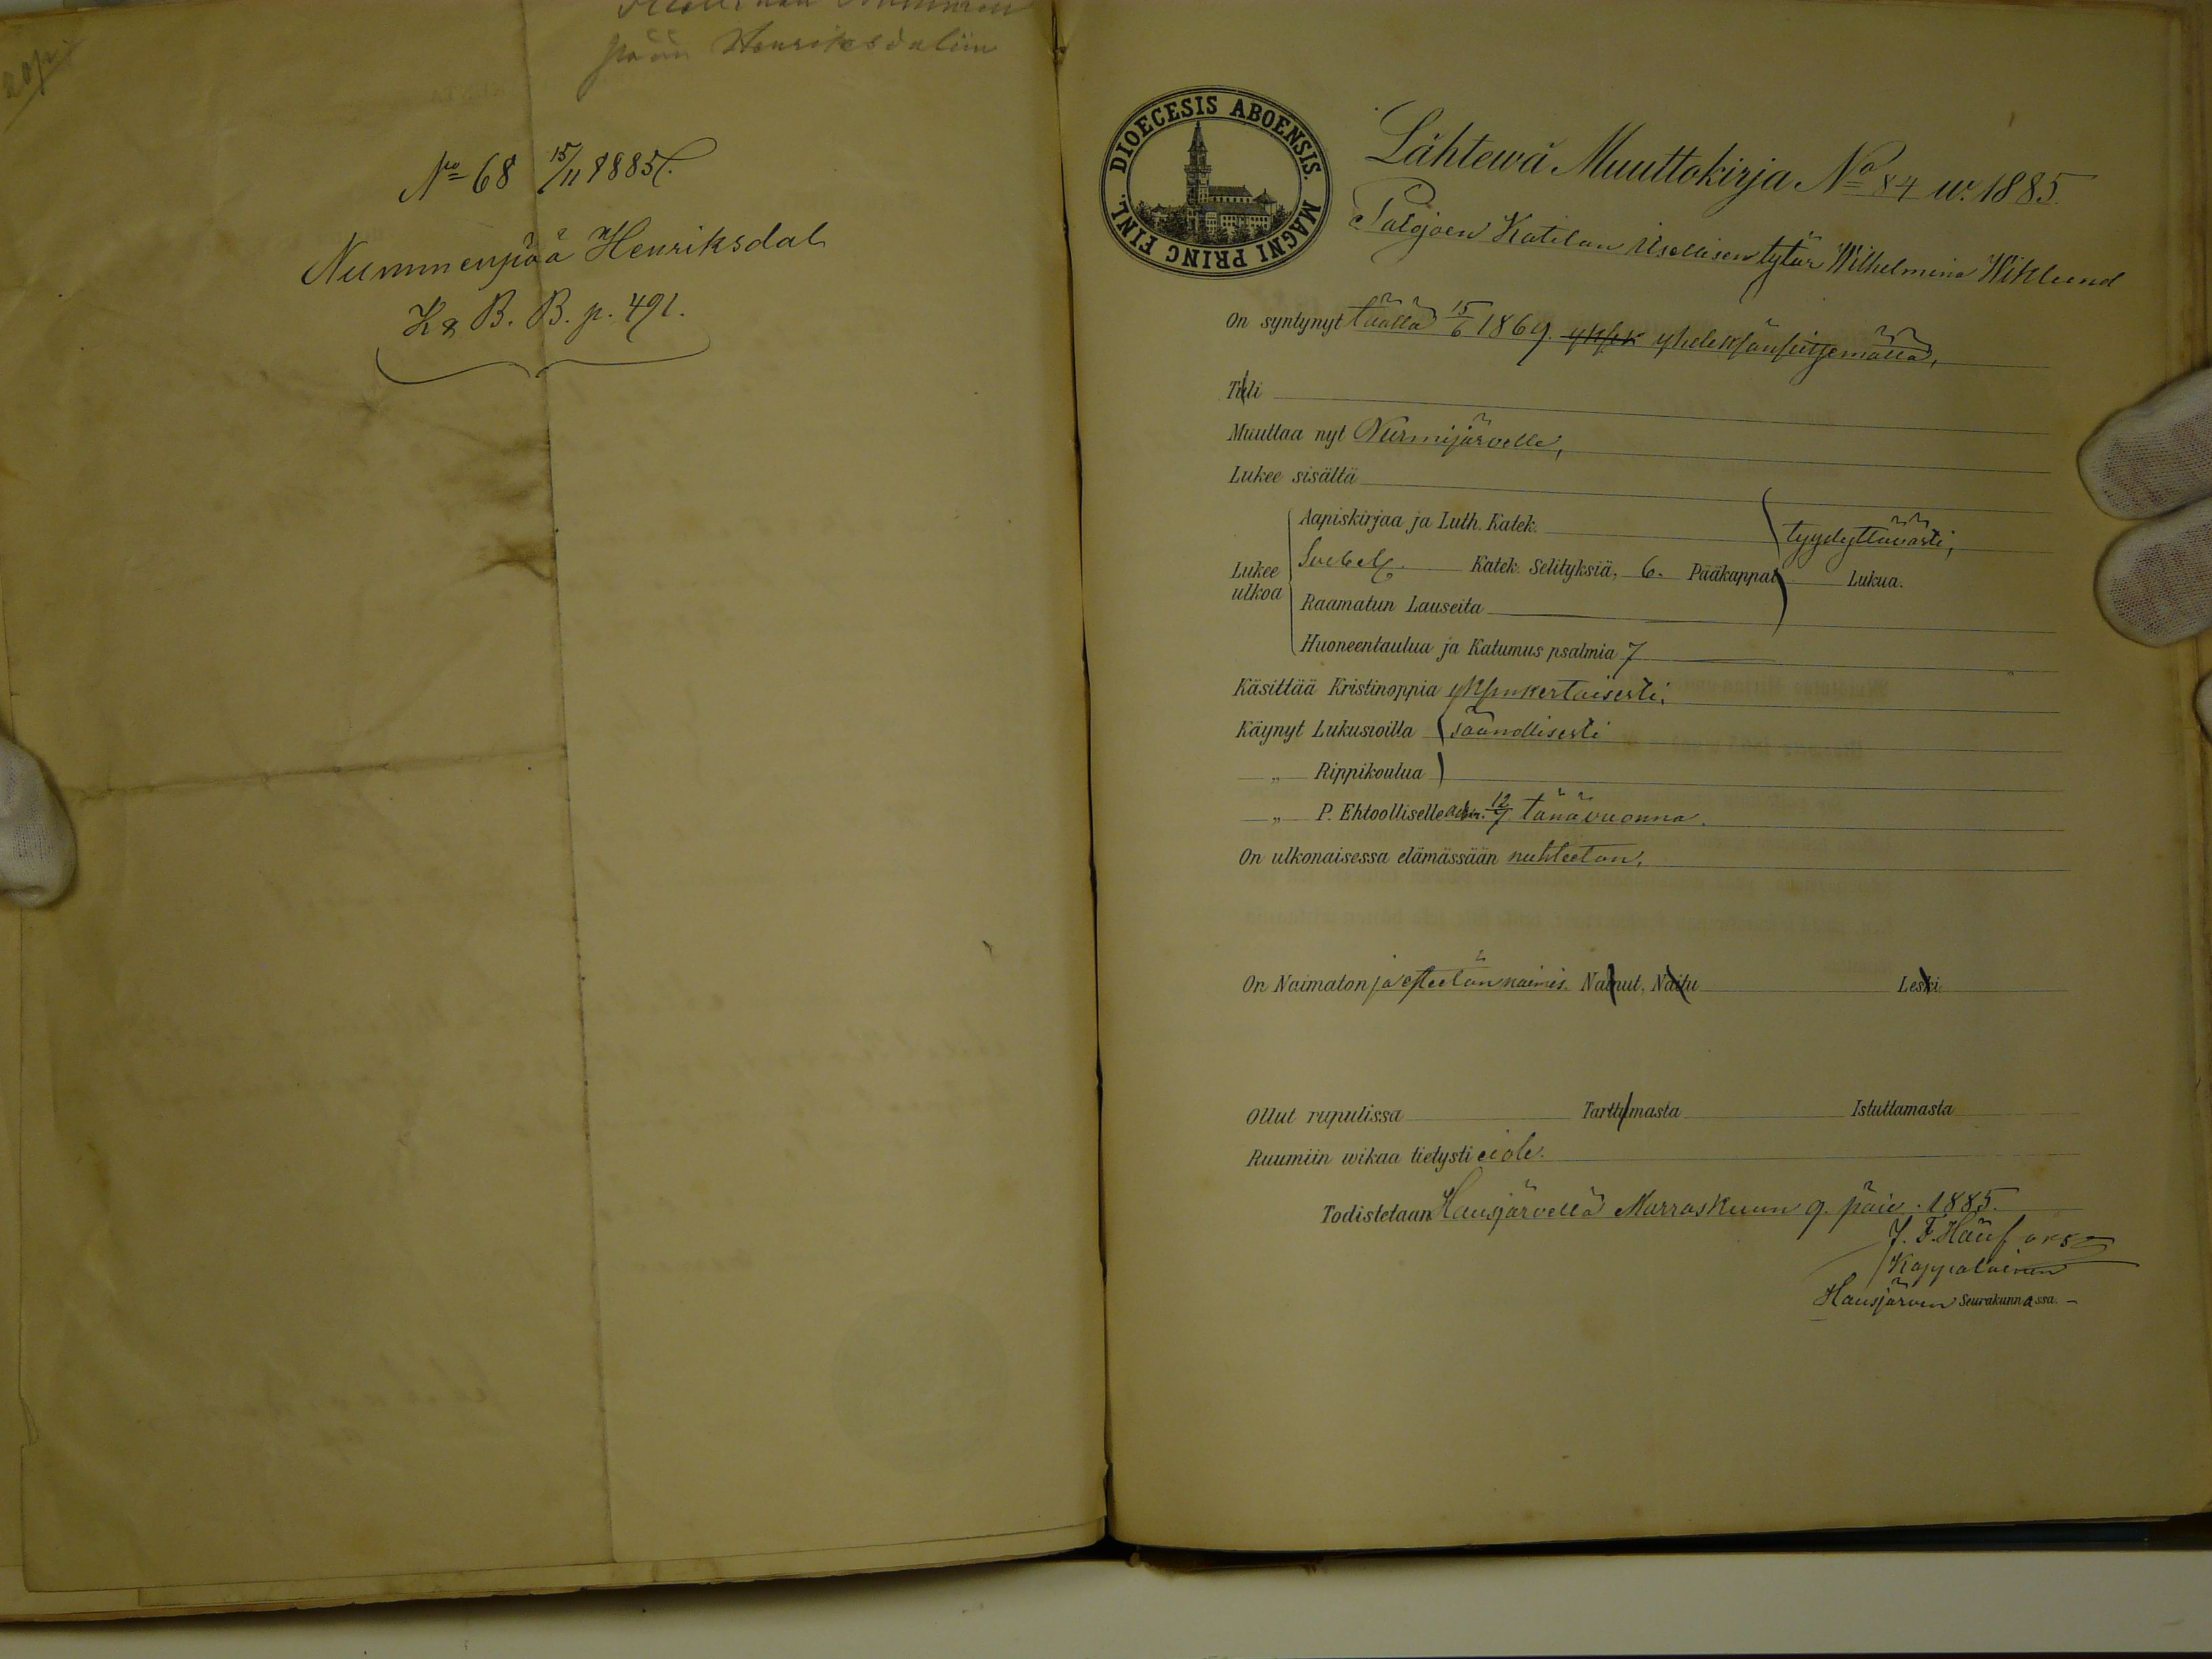 pään Henriksdaliin
No 68 15/11 1885.
Nummenpää Henriksdal
K B. B. p. 491.
DIOECESIS ABOENSIS. MAGNI PRINC FINL.
Lähtewä Muuttokirja No 84 w. 1885.
Palojoen Katilan Itsellisen tytär Wilhelmina Wiklund
On syntynyt täällä 15/6 1869. yhdeksänseitsemättä,
Tuli
Muuttaa nyt Nurmijärvelle,
Lukee sisältä
Aapiskirjaa ja Luth. Katek. tyydyttävästi,
Lukee ulkoa Svebel. Katek. Selityksiä, 6. Pääkappat Lukua.
Raamatun Lauseita
Huoneentaulua ja Katumus psalmia 7
Käsittää Kristinoppia yksinkertaisesti.
Käynyt Lukusioilla säännöllisesti
„ Rippikoulua
„ P. Ehtoollisella 12/7 tänävuonna.
On ulkonaisessa elämässään nuhteeton.
On Naimaton ja esteetön naimis. Nainut, Naitu Leski
Ollut rupulissa Tarttumasta Istuttamasta
Ruumiin wikaa tietysti ei ole.
Todistetaan Hausjärvellä Marraskuun 9. päiv. 1885.
Kappalainen
Hausjärven Seurakunnassa.